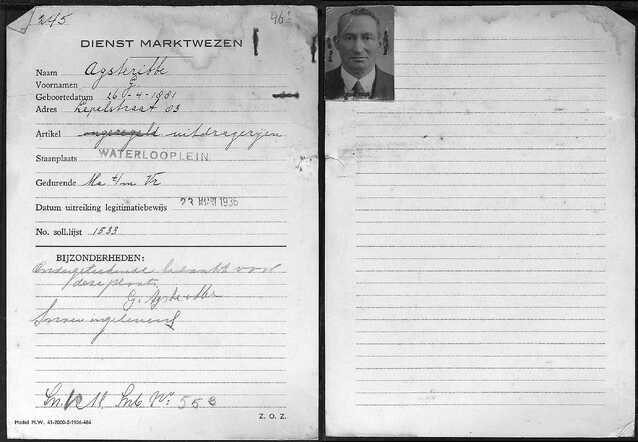 245
DIENST MARKTWEZEN
Naam Agsteribbe
Voornamen G
Geboortedatum 26-4-1881
Adres Lepelstraat 83
Artikel ongeregeld uitdragerijen
Staanplaats WATERLOOPLEIN
Gedurende Ma t/m Vr
Datum uitreiking legitimatiebewijs 23 1936
No. soll.lijst 1533
BIJZONDERHEDEN:
Ondergeteekende bedankt voor
deze plaats.
G. Agsteribbe
Z. O. Z.
Model M.W. 41-2000-5-1936-484